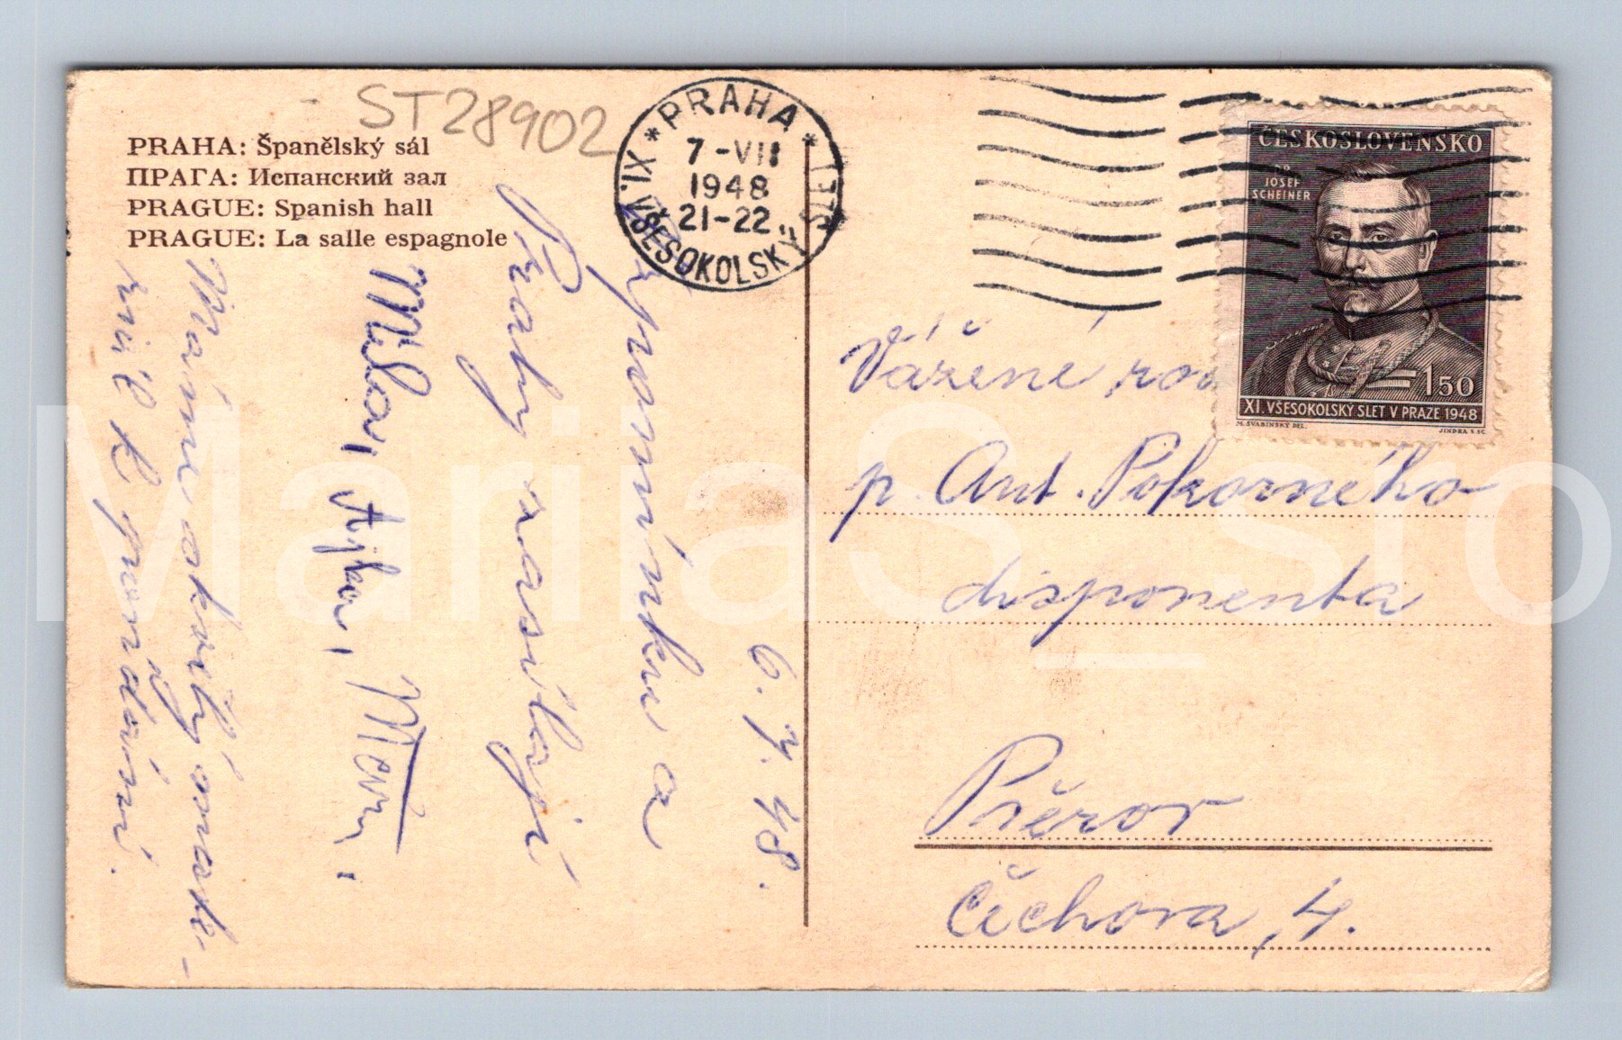 ST28902
PRAHA: Španělský sál
ПРАГА: Испанский зал
PRAGUE: Spanish hall
PRAGUE: La salle espagnole
* PRAHA *
7-VII
1948
21-22
XI. VŠESOKOLSKÝ SLET
ČESKOSLOVENSKO
DR
JOSEF
SCHEINER
1 50
XI. VŠESOKOLSKÝ SLET V PRAZE 1948
M. ŠVABINSKÝ DEL.
JINDRA SC.
6. 7. 48.
Vzpomínku a
Prahy zasílají
Milan,
Máme
k
Vážené
p. Ant. Pokorného
disponenta
Přerov
Čechova, 4.
MarijaS_sro